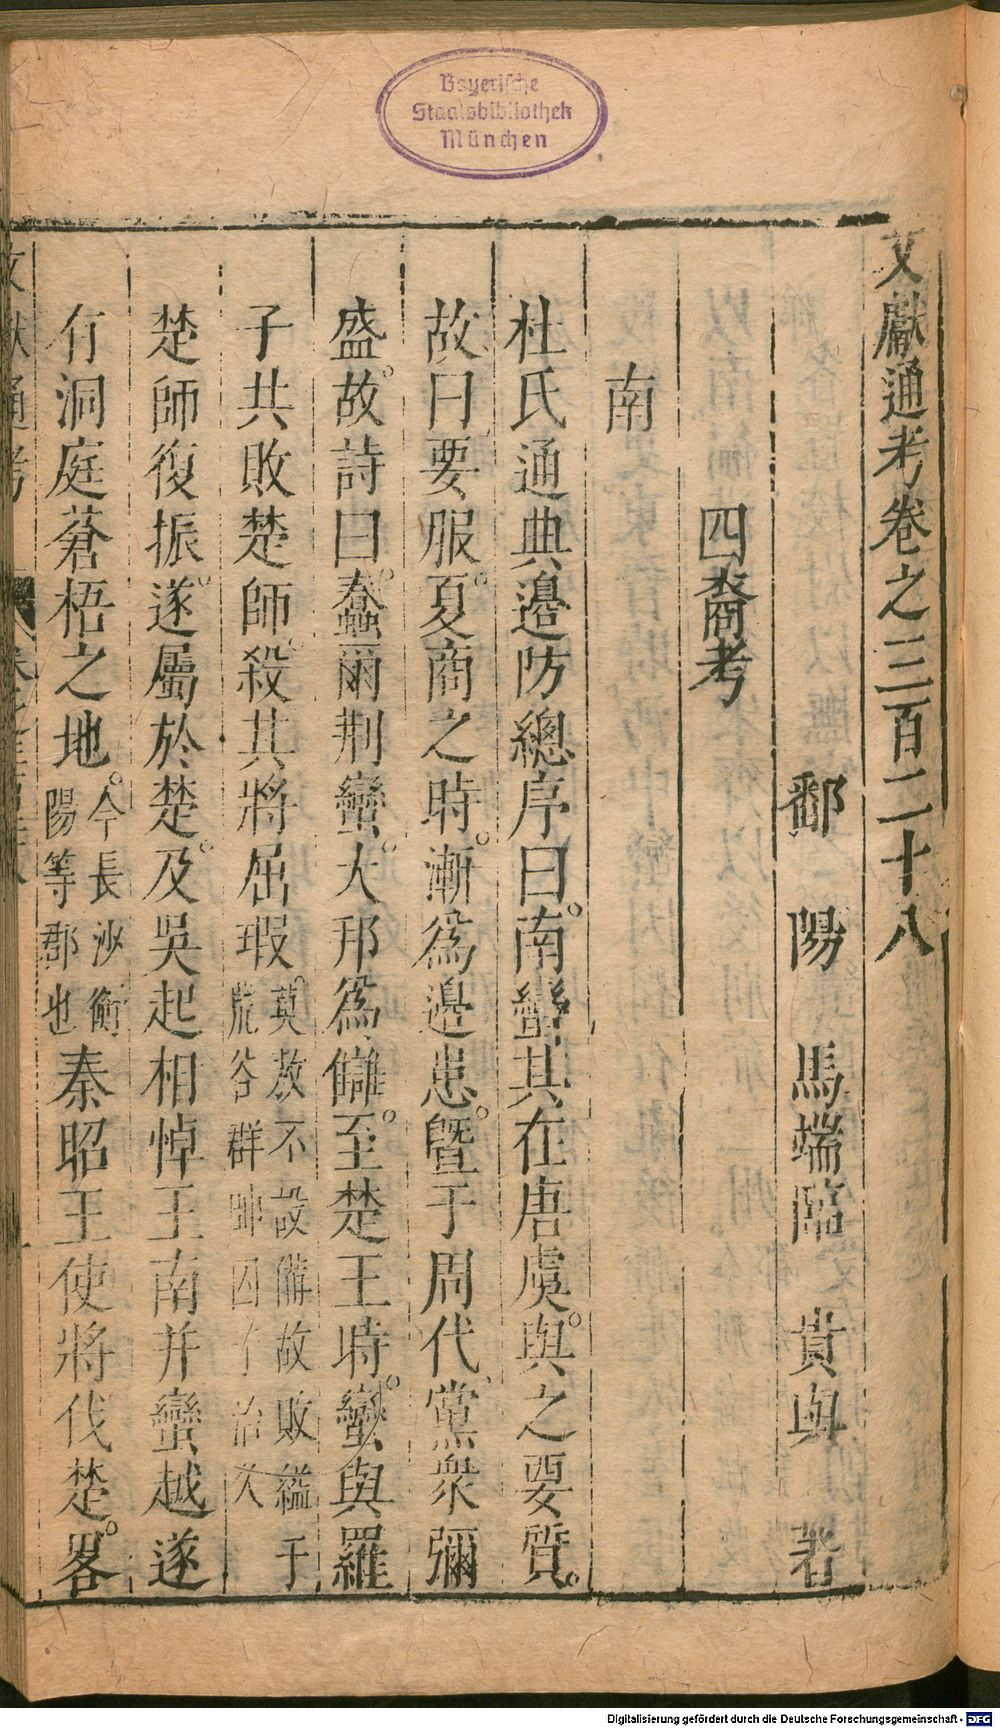 Bayerische
Staatsbibliothek
München
文獻通考卷之三百二十八
鄱陽馬端臨貴與著
四裔考
南
杜氏通典邊防總序曰南蠻其在唐虞與之要質
故曰要服夏商之時漸爲邊患曁于周代黨衆彌
盛故詩曰蠢爾荆蠻大邦爲讎至楚王時蠻與羅
子共敗楚師殺其將屈瑕莫敖不設備故敗縊于
荒谷群帥囚于治父
楚師復振遂屬於楚及吳起相悼王南并蠻越遂
有洞庭蒼梧之地今長沙衡
陽等郡也秦昭王使將伐楚畧
文獻通考
Digitalisierung gefördert durch die Deutsche Forschungsgemeinschaft - DFG